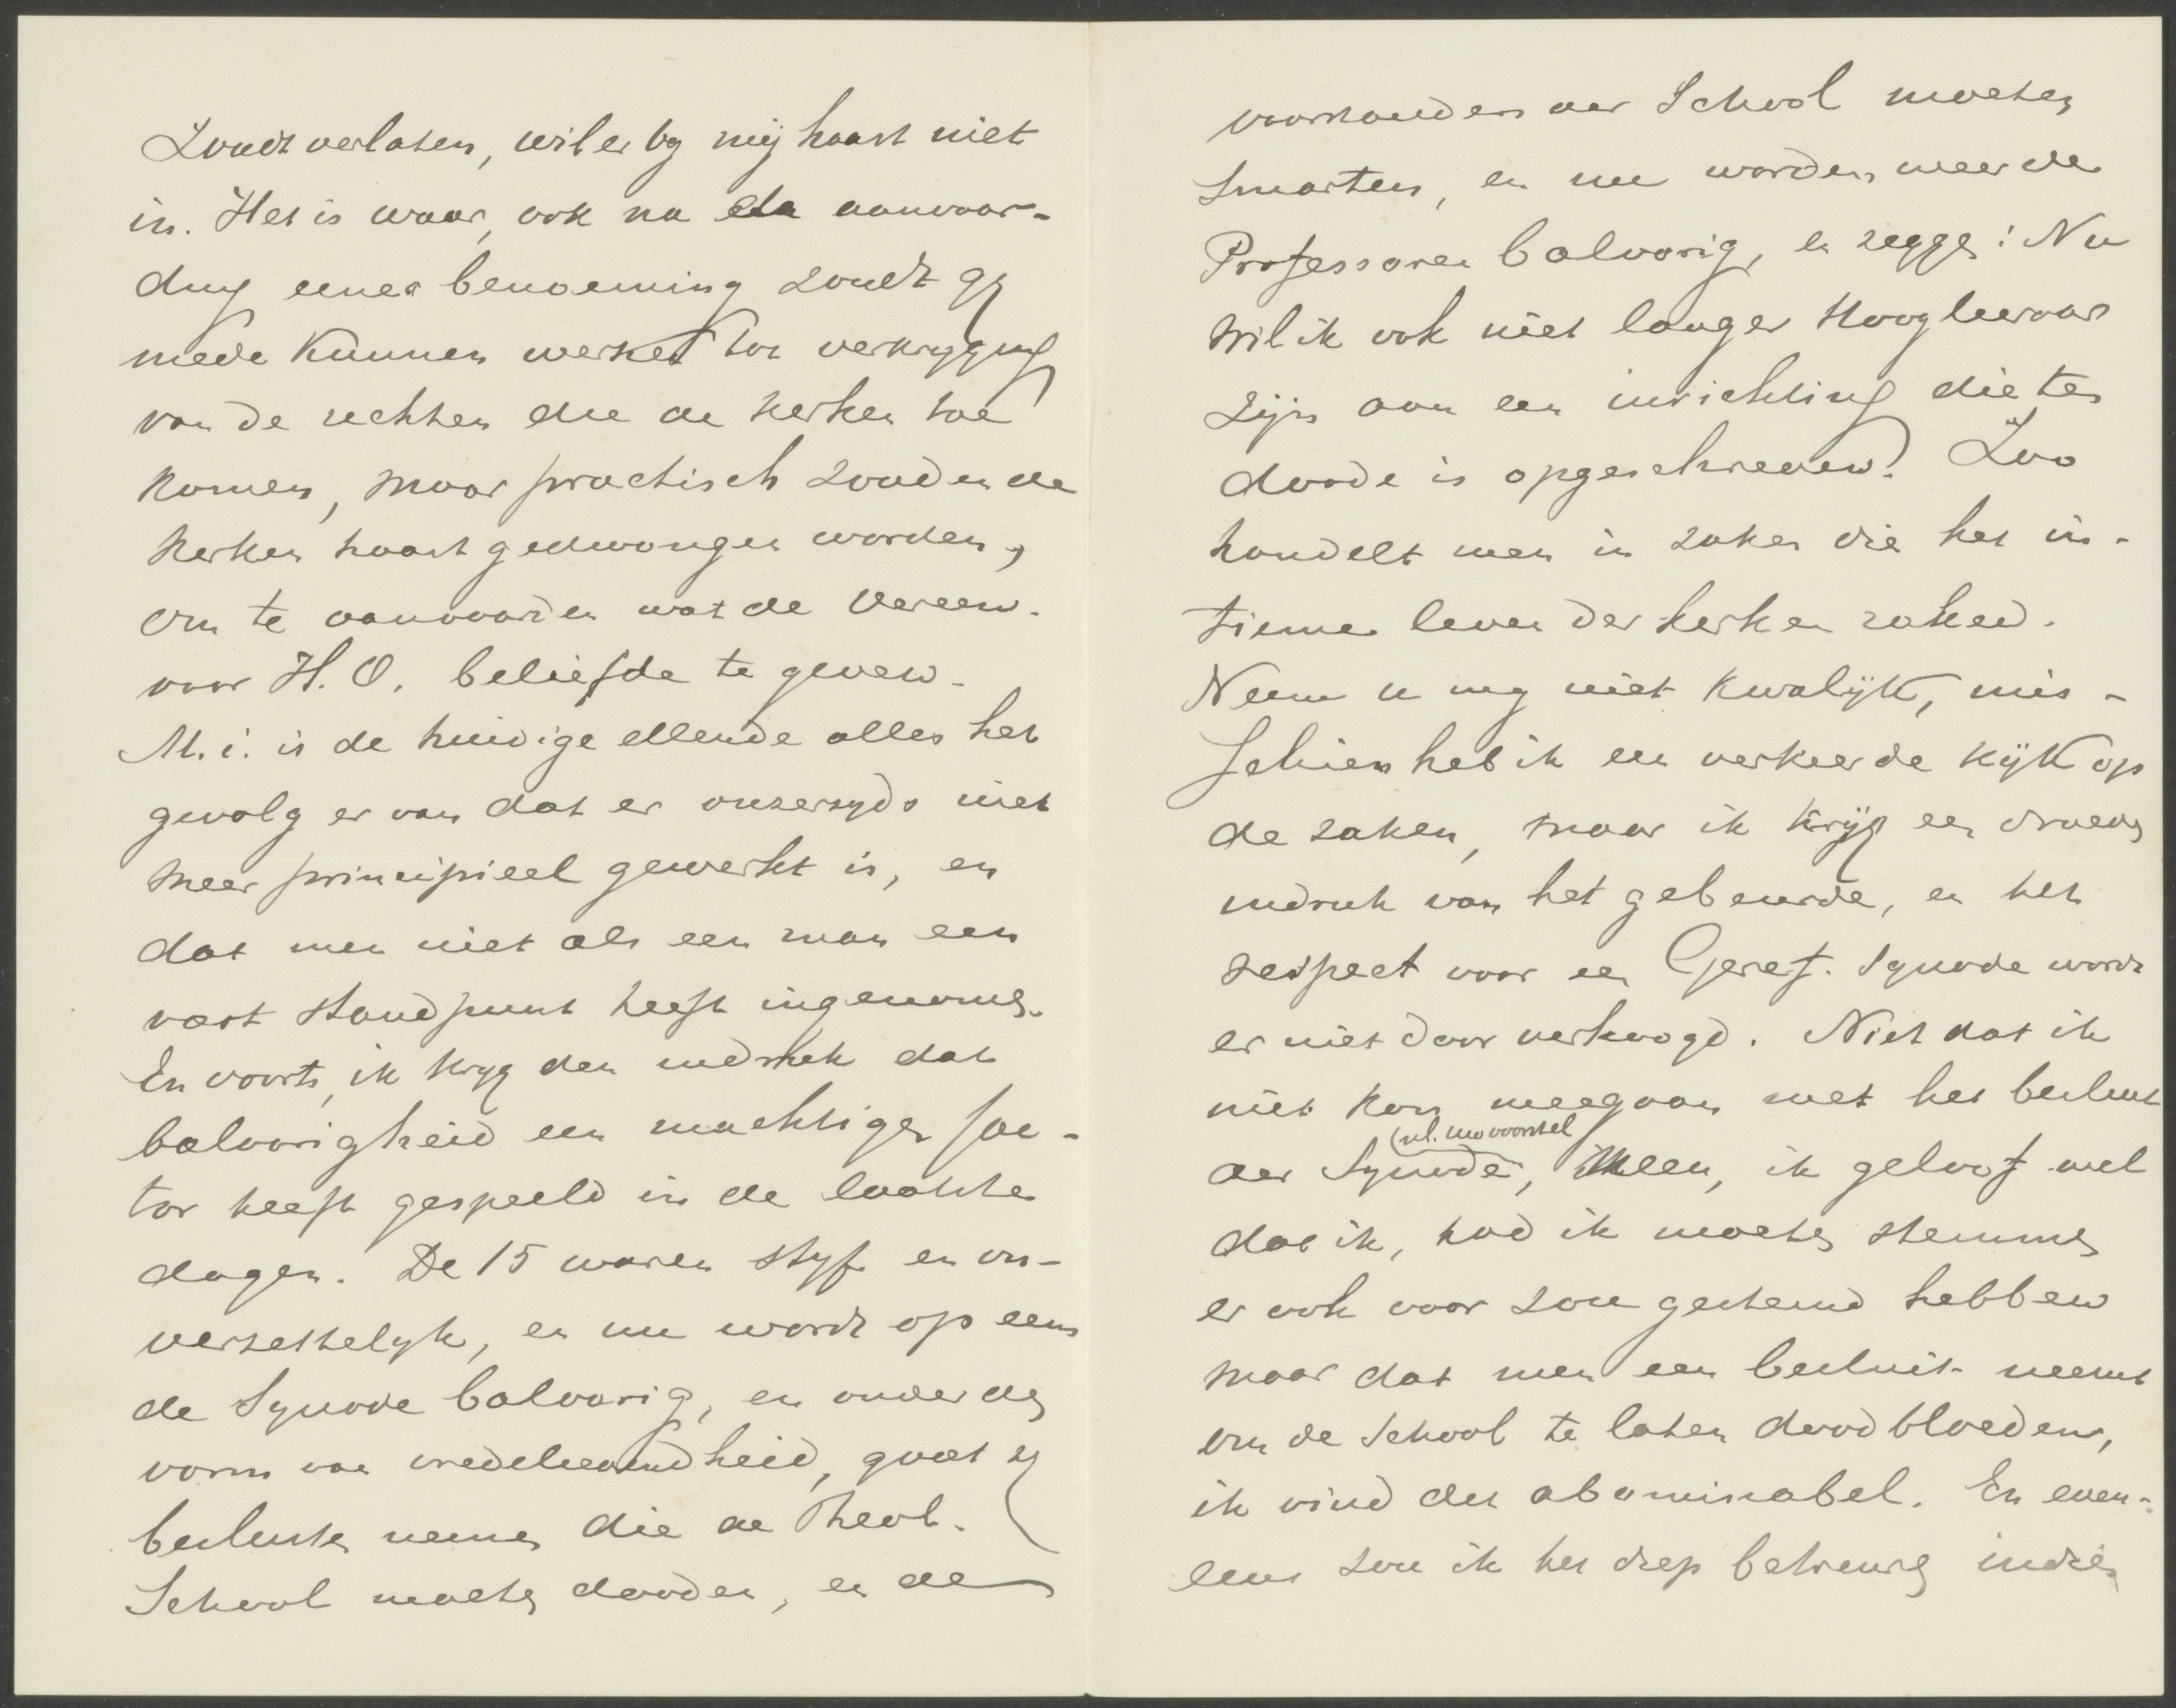 Zoudt verlaten, wil er by mij haast niet
in. Het is waar, ook na de aanvaar-
ding eener benoeming zoudt gy
mede kunnen werken tot verkryging
van de rechten die de kerken toe
komen, maar practisch zouden de
kerken haast gedwongen worden,
om te aanvaarden wat de Vereen.
voor H. O. beliefde te geven.
M. i. is de huidige ellende alles het
gevolg er van dat er onzerzyds niet
meer principieel gewerkt is, en
dat men niet als een man een
vast standpunt heeft ingenomen.
En voorts, ik kryg den indruk dat
baloorigheid een machtige fac-
tor heeft gespeeld in de laatste
dagen. De 15 waren styf en on-
verzettelyk, en nu wordt op eens
de Synode baloorig, en onder den
vorm van vredelievendheid, gaat zy
besluiten nemen die de Theol.
School moeten dooden, en de
voorstanders der School moeten
smarten, en nu worden weer de
Professoren baloorig, en zeggen: Nu
wil ik ook niet langer Hoogleeraar
zijn aan een inrichting die ten
doode is opgeschreven! Zoo
handelt men in zaken die het in-
tieme leven der kerken raken.
Neem u my niet kwalijk, mis-
schien heb ik een verkeerde kijk op
de zaken, maar ik krijg een droeven
indruk van het gebeurde, en het
respect voor een Geref. Synode wordt
er niet door verhoogd. Niet dat ik
niet kon meegaan met het besluit
(nl. uw voorstel
der Synode, Neen, ik geloof wel
dat ik, had ik moeten stemmen
er ook voor zou gestemd hebben
maar dat men een besluit neemt
om de School te laten doodbloeden,
ik vind det abominabel. En even-
eens zou ik het diep betreuren indien